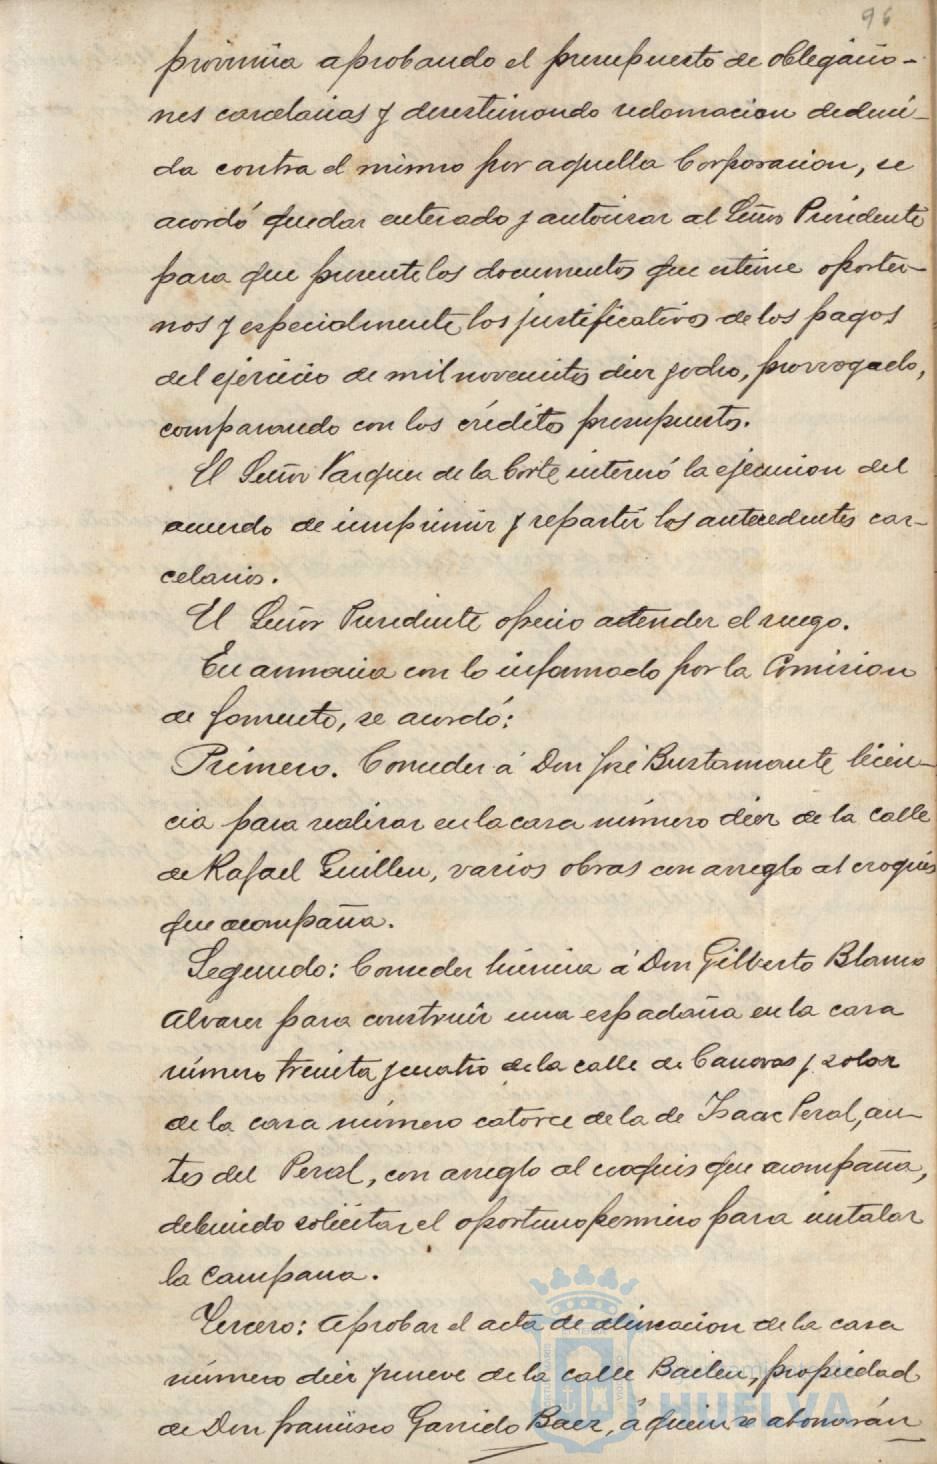 96
provincia aprobando el presupuesto de obligacio-
nes carcelarias y desestimando reclamacion deduci-
da contra el mismo por aquella Corporacion, se
acordó quedar enterado y autorizar al Señor Presidente
para que presente los documentos que estime oportu-
nos y especialmente los justificativos de los pagos
del ejercicio de mil novecientos diez y ocho, prorrogado,
comparando con los créditos presupuestos.
El Señor Vazquez de la Corte interesó la ejecucion del
acuerdo de imprimir y repartir los antecedentes car-
celarios.
El Señor Presidente ofrecio atender el ruego.
En armonia con lo informado por la Comision
de fomento, se acordó:
Primero. Conceder á Don José Bustamante licen-
cia para realizar en la casa número diez de la calle
de Rafael Guillen, varios obras con arreglo al croquis
que acompaña.
Segundo: Conceder licencia á Don Gilberto Blanco
Alvarez para construir una espadaña en la casa
número treinta y cuatro de la calle de Canovas y solar
de la casa número catorce de la de Isaac Peral, an-
tes del Peral, con arreglo al croquis que acompaña,
debiendo solicitar el oportuno permiso para instalar
la campana.
Tercero: Aprobar el acta de alineacion de la casa
número diez y nueve de la calle Bailen, propiedad
de Don francisco Garrido Baez, á quien se abonarán
HUELVA